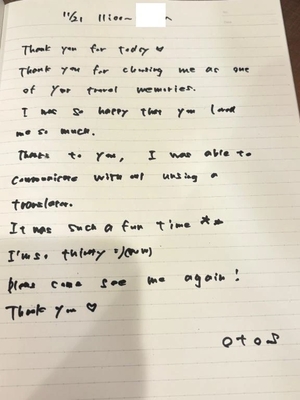 11/21 11:00~
Thank you for today ♡
Thank you for choosing me as one
of your travel memories.
I was so happy that you loved
me so much.
Thanks to you, I was able to
communicate with out unsing a
translator.
It was such a fun time **
I'm so thirsty
pleas come see me again!
Thank you ♡